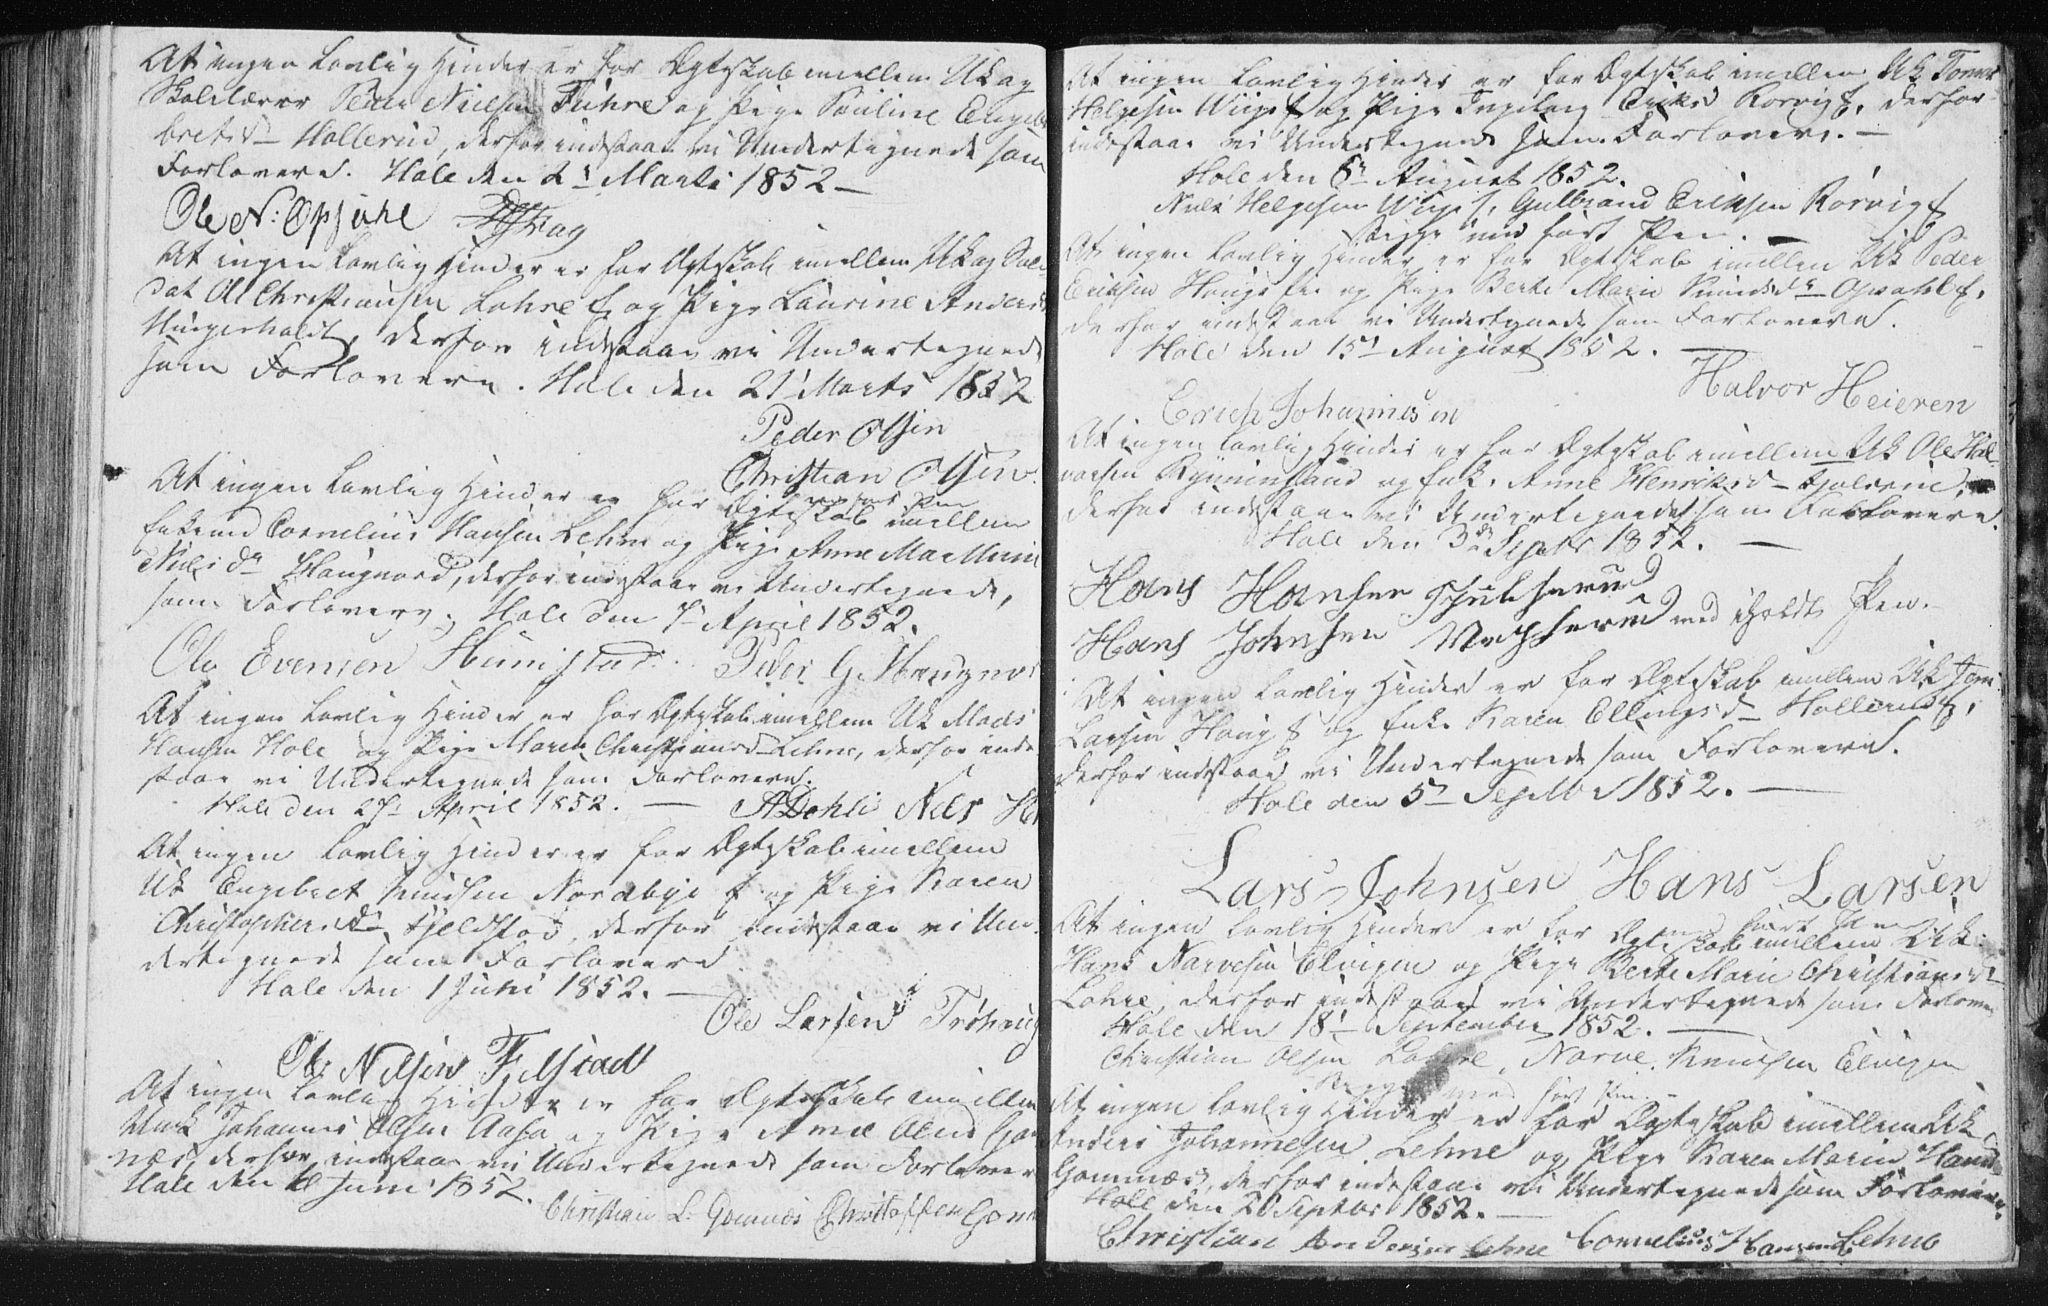 At ingen Lovlig Hinder er for Ægteskab imellem Uk og
Skolelærer Peder Nielsen Fuhre og Pige Pauline Engel
bretsd Hollerud, derfor indestaar vi Undertegnede som
Forlovere. Hole den 2 Marts 1852 —
Ole N: Opsahl
At ingen Lovlig Hinder er for Ægteskab imellem Uk og Sol-
dat Ole Christiansen Lohre og Pige Laurine Anders
derfor indestaar vi Undertegnede
som Forlovere. Hole den 21 Marts 1852
Peder Olsen
Christian Olsen
At ingen Lovlig Hinder er for Ægteskab imellem
Enkem Cornelius Hansen Lehne og Pige Anne
Nielsd Haugnord, derfor indestaar vi Undertegnede,
som Forlovere. Hole den 7 April 1852.
Ole Evensen Peder G. Haugnor
At ingen Lovlig Hinder er for Ægteskab imellem Uk Mads
Hansen Hole og Pige Maren Christiansd Lehne, derfor inde
staar vi Undertegnede som Forlovere.
Hole den 27 April 1852. — ADehli Nils
At ingen Lovlig Hinder er for Ægteskab imellem
Uk Engebret Knudsen Nordbye og Pige Karen
Christophersd Fjeldstad, derfor indestaar vi Un-
dertegnede som Forlovere
Hole den 1 Juni 1852. —
Ole Larsen Frøhaug
Ole Nilsen Fjelstad
At ingen Lovlig Hinder er for Ægteskab imellem
Johannes Olsen Aasa og Pige Anne Olsd Gom
næs, derfor indestaar vi Undertegnede som Forlover
Hole den Juni 1852.
Christian L. Gomnæs Christoffer Gom
At ingen Lovlig Hinder er for Ægteskab imellem Uk
Helgesen Wiig og Pige Ingeborg Eriksd Rørvig, derfor
indestaar vi Undertegnede som Forlovere. —
Hole den 8 August 1852.
Niels Helgesen Wiig, Gulbrand Eriksen Rørvig
Begge med ført Pen. —
At ingen Lovlig Hinder er for Ægteskab imellem Uk Peder
Eriksen Haug og Pige Berte Marie Knudsd Opsahl,
derfor indestaar vi Undertegnede som Forlovere.
Hole den 15 August 1852. —
Halvor Heieren
Erich Johannesen
At ingen Lovlig Hinder er for Ægteskab imellem Uk Ole Hal-
vorsen og Enke Anne Henriksd
derfor indestaar vi Undertegnede som Forlovere.
Hole den 3de Septbr 1852. —
Hans Hansen
Hans Johnsen med iholdt Pen.
At ingen Lovlig Hinder er for Ægteskab imellem Uk
Larsen Haug og Enke Karen Ellingsd Hollerud,
derfor indestaar vi Undertegnede som Forlovere.
Hole den 5 Septbr 1852. —
Lars Johnsen Hans Larsen
med ført Pen
At ingen Lovlig Hinder er for Ægteskab imellem Uk
Hans Narvesen Elvigen og Pige Berte Marie Christiansd
Lohre, derfor indestaar vi Undertegnede som Forlovere
Hole den 18 September 1852. —
Christian Olsen Lohre, Narve Knudsen Elvigen
Begge med ført Pen. —
At ingen Lovlig Hinder er for Ægteskab imellem Uk
Anders Johannesen Lehne og Pige Karen Marie Hansd
Gomnæs, derfor indestaar vi Undertegnede som Forlovere.
Hole den 26 Septbr 1852. —
Christian Andersen Lehne Cornelius Hansen Lehne